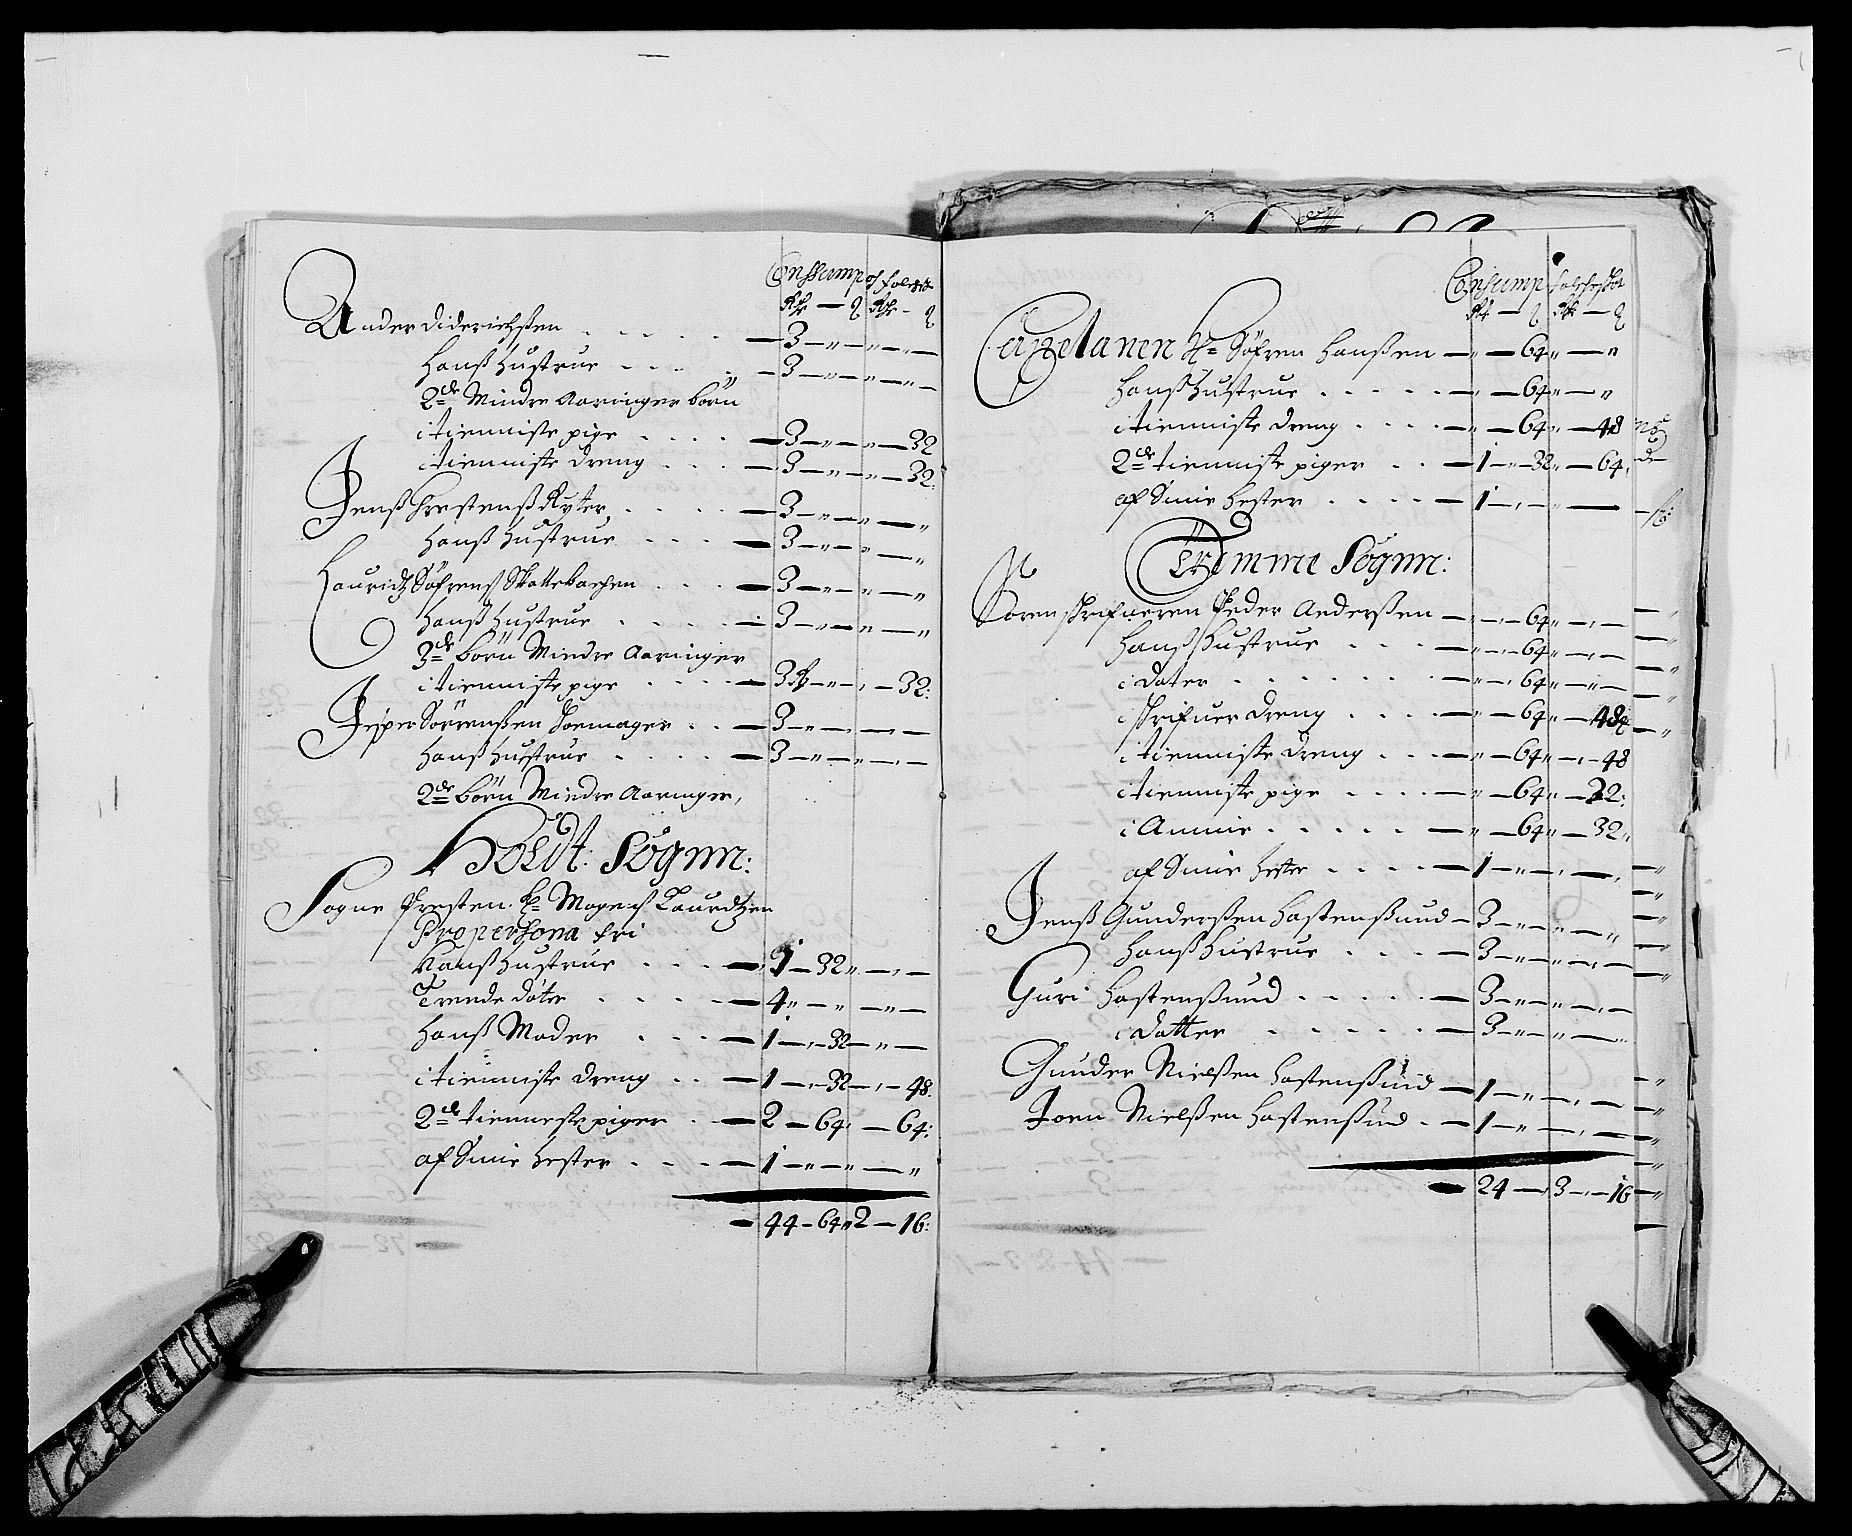 Consump og folcheskat
Rdr — s Rdr - s
Ander Diderichßen . . . . — 3 — „ — „ — „ —
Hanß hustrue . . . . — 3 — „ — „ — „ —
2de Mindre Aaringer börn
i tienniste pige . . . . — 3 — „ — „ — 32
i tienniste dreng . . . — 3 — „ — „ — 32:
Jenß Chrestenß Ryter . . . . — 3 — „ — „ — „
Hanß hustrue . . . . — 3 — „ — „ — „
Lauridtz Söfrens Skattebachen . . . — 3 — „ — „ — „
Hanß hustrue . . . . — 3 — „ — „ — „
3de börn Mindre Aaringer
i tienniste pige . . . . — 3 — „ — „ — 32:
Jesper Sörrenßen Soemager . . — 3 — „ — „ — „ —
Hanß hustrue . . . . — 3 — „ — „ — „ —
2de börn Mindre Aaringer,
Holdt: Sognn:
Sogne Presten. Hr Mogens Lauridtzen
Pro persona fri
Hanß hustrue . . . — 1 — 32 „ — „ —
Trende döter . . . . — 4 „ — „ — „ —
Hanß Moder . . . — 1 — „ 32 — „ —
i tienniste dreng . . — 1 — „ 32 — „ — 48.
2de tienneste piger . . — 2 — 64: — 64:
af Sinie hester . . . — 1 — „ — „ — „
— 44 — 64 „ 2 — 16:
Consump folcheskat
Rdr — s Rdr — s
Capelanen Hr Söfren Hanßen — „ — 64 „ — „
Hanß hustrue . . . . . — „ — 64 „ — „
i tienniste dreng . . . . — „ — 64 „ — 48
2de tienniste piger . . — 1 — „ — 32 „ — 64.
af Sinie hester . . . . — 1 — „ — —
Tromme Sognn:
Sorenskrifueren Peder Anderßen — „ — „ — 64 „ — „ —
Hanß Hustrue . . . . — „ — „ — 64 „ — „ —
i Dater . . . . . . . — „ — „ 64 „ — „ —
i skrifuer dreng . . . . — „ — 64 „ — 48
i tienniste dreng . . . — „ — 64 „ — „ — 48
i tienniste pige . . . . — „ — 64 „ — 32:
i Amme . . . . . — „ — 64 „ — 32 „
af Sinie hester . . . . — 1 — „ — „ — „
Jenß Gunderßen Hastenßund — 3 — „ — „ — „
Hanß hustrue . . . — 3 — „ — „ — „ —
Guri Hastenßund . . . . . — 3 — „ — „ — „ —
i Datter . . . . . — 3 — „ — „ — „
Gunder Nielßen Hastenßund — 1 — „ — „ —
Joen Nielßen Hastenßund . — 1 — „ — „ —
— 24 — „ 3 — „ — 16